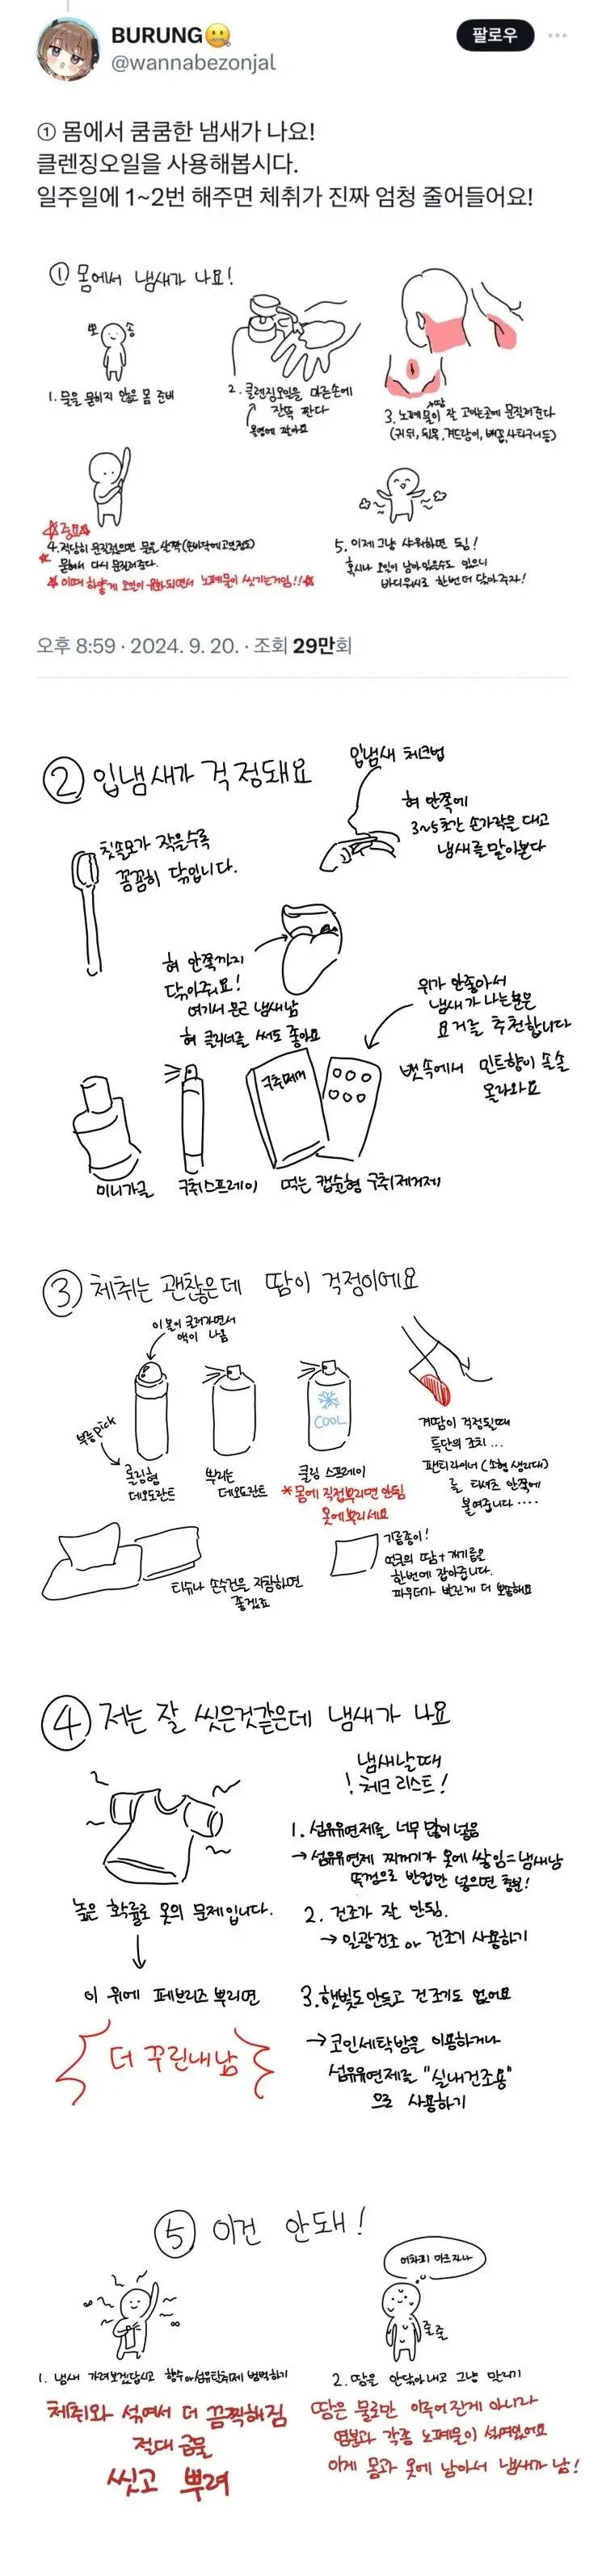 BURUNG🤐
@wannabezonjal
팔로우
① 몸에서 쿰쿰한 냄새가 나요!
클렌징오일을 사용해봅시다.
일주일에 1~2번 해주면 체취가 진짜 엄청 줄어들어요!
① 몸에서 냄새가 나요!
뽀송
1. 물을 묻히지 않은 몸 준비
2. 클렌징오일을 마른손에
잔뜩 짠다
3. 노폐물이 잘 고이는곳에 문질러준다
땀
(귀 뒤, 뒷목, 겨드랑이, 배꼽, 사타구니등)
☆중요☆
4. 적당히 문질렀으면 물을 살짝(손바닥에 고인정도)
묻혀서 다시 문질러준다.
☆이때 하얗게 오일이 유화되면서 노폐물이 씻기는거임!!☆
5. 이제 그냥 샤워하면 됨!
혹시나 오일이 남아있을수도 있으니
바디워시로 한번 더 닦아주자!
오후 8:59 · 2024. 9. 20. · 조회 29만회
② 입냄새가 걱정돼요
입냄새 체크법
혀 안쪽에
3~5초간 손가락을 대고
냄새를 맡아본다
칫솔모가 작을수록
꼼꼼히 닦입니다.
혀 안쪽까지
닦아줘요!
여기서 은근 냄새남
혀 클리너를 써도 좋아요
위가 안좋아서
냄새가 나는분은
요거를 추천합니다
뱃속에서 민트향이 솔솔
올라와요
구취제거
미니가글
구취스프레이
먹는 캡슐형 구취제거제
③ 체취는 괜찮은데 땀이 걱정이에요
이 볼이 굴러가면서
액이 나옴
부릉pick
롤링형
데오도란트
뿌리는
데오도란트
COOL
쿨링 스프레이
*몸에 직접뿌리면 안됨
옷에뿌리세요
겨땀이 걱정될때
특단의 조치...
팬티라이너(소형 생리대)
를 티셔츠 안쪽에
붙여줍니다....
티슈나 손수건을 지참하면
좋겠죠
기름종이!
얼굴의 땀+개기름을
한번에 잡아줍니다.
파우더가 발린게 더 뽀송해요
④ 저는 잘 씻은것같은데 냄새가 나요
냄새날때
! 체크 리스트!
1. 섬유유연제를 너무 많이 넣음
→ 섬유유연제 찌꺼기가 옷에 쌓임=냄새남
뚜껑으로 반컵만 넣으면 충분!
높은 확률로 옷의 문제입니다.
2. 건조가 잘 안됨.
→ 일광건조 or 건조기 사용하기
이 위에 페브리즈 뿌리면
더 꾸린내남
3. 햇빛도 안들고 건조기도 없어요
→ 코인세탁방을 이용하거나
섬유유연제를 "실내건조용"
으로 사용하기
⑤ 이건 안돼!
어차피 마르자나
줄줄
1. 냄새 가려보겠답시고 향수or섬유탈취제 범벅하기
체취와 섞여서 더 끔찍해짐
절대 금물
씻고 뿌려
2. 땀을 안닦아내고 그냥 말리기
땀은 물로만 이루어진게 아니라
염분과 각종 노폐물이 섞여있어요
이게 몸과 옷에 남아서 냄새가 남!